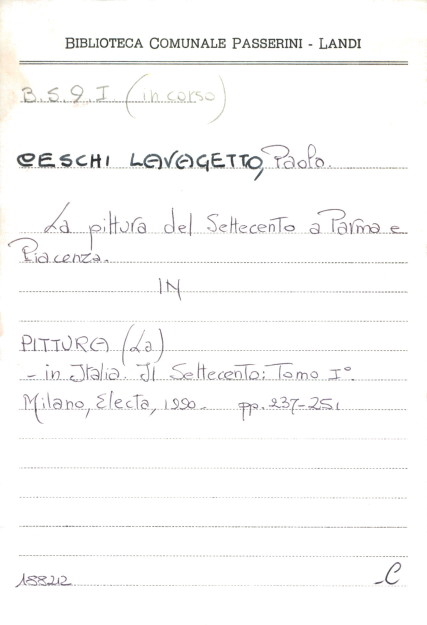 BIBLIOTECA COMUNALE PASSERINI - LANDI
B.S.Q.I (in corso)
CESCHI LAVAGETTO, Paolo.
La pittura del Settecento a Parma e
Piacenza.
IN
PITTURA (La)
- in Italia. Il Settecento: Tomo I°.
Milano, Electa, 1990. pp. 237-251
188212
-C